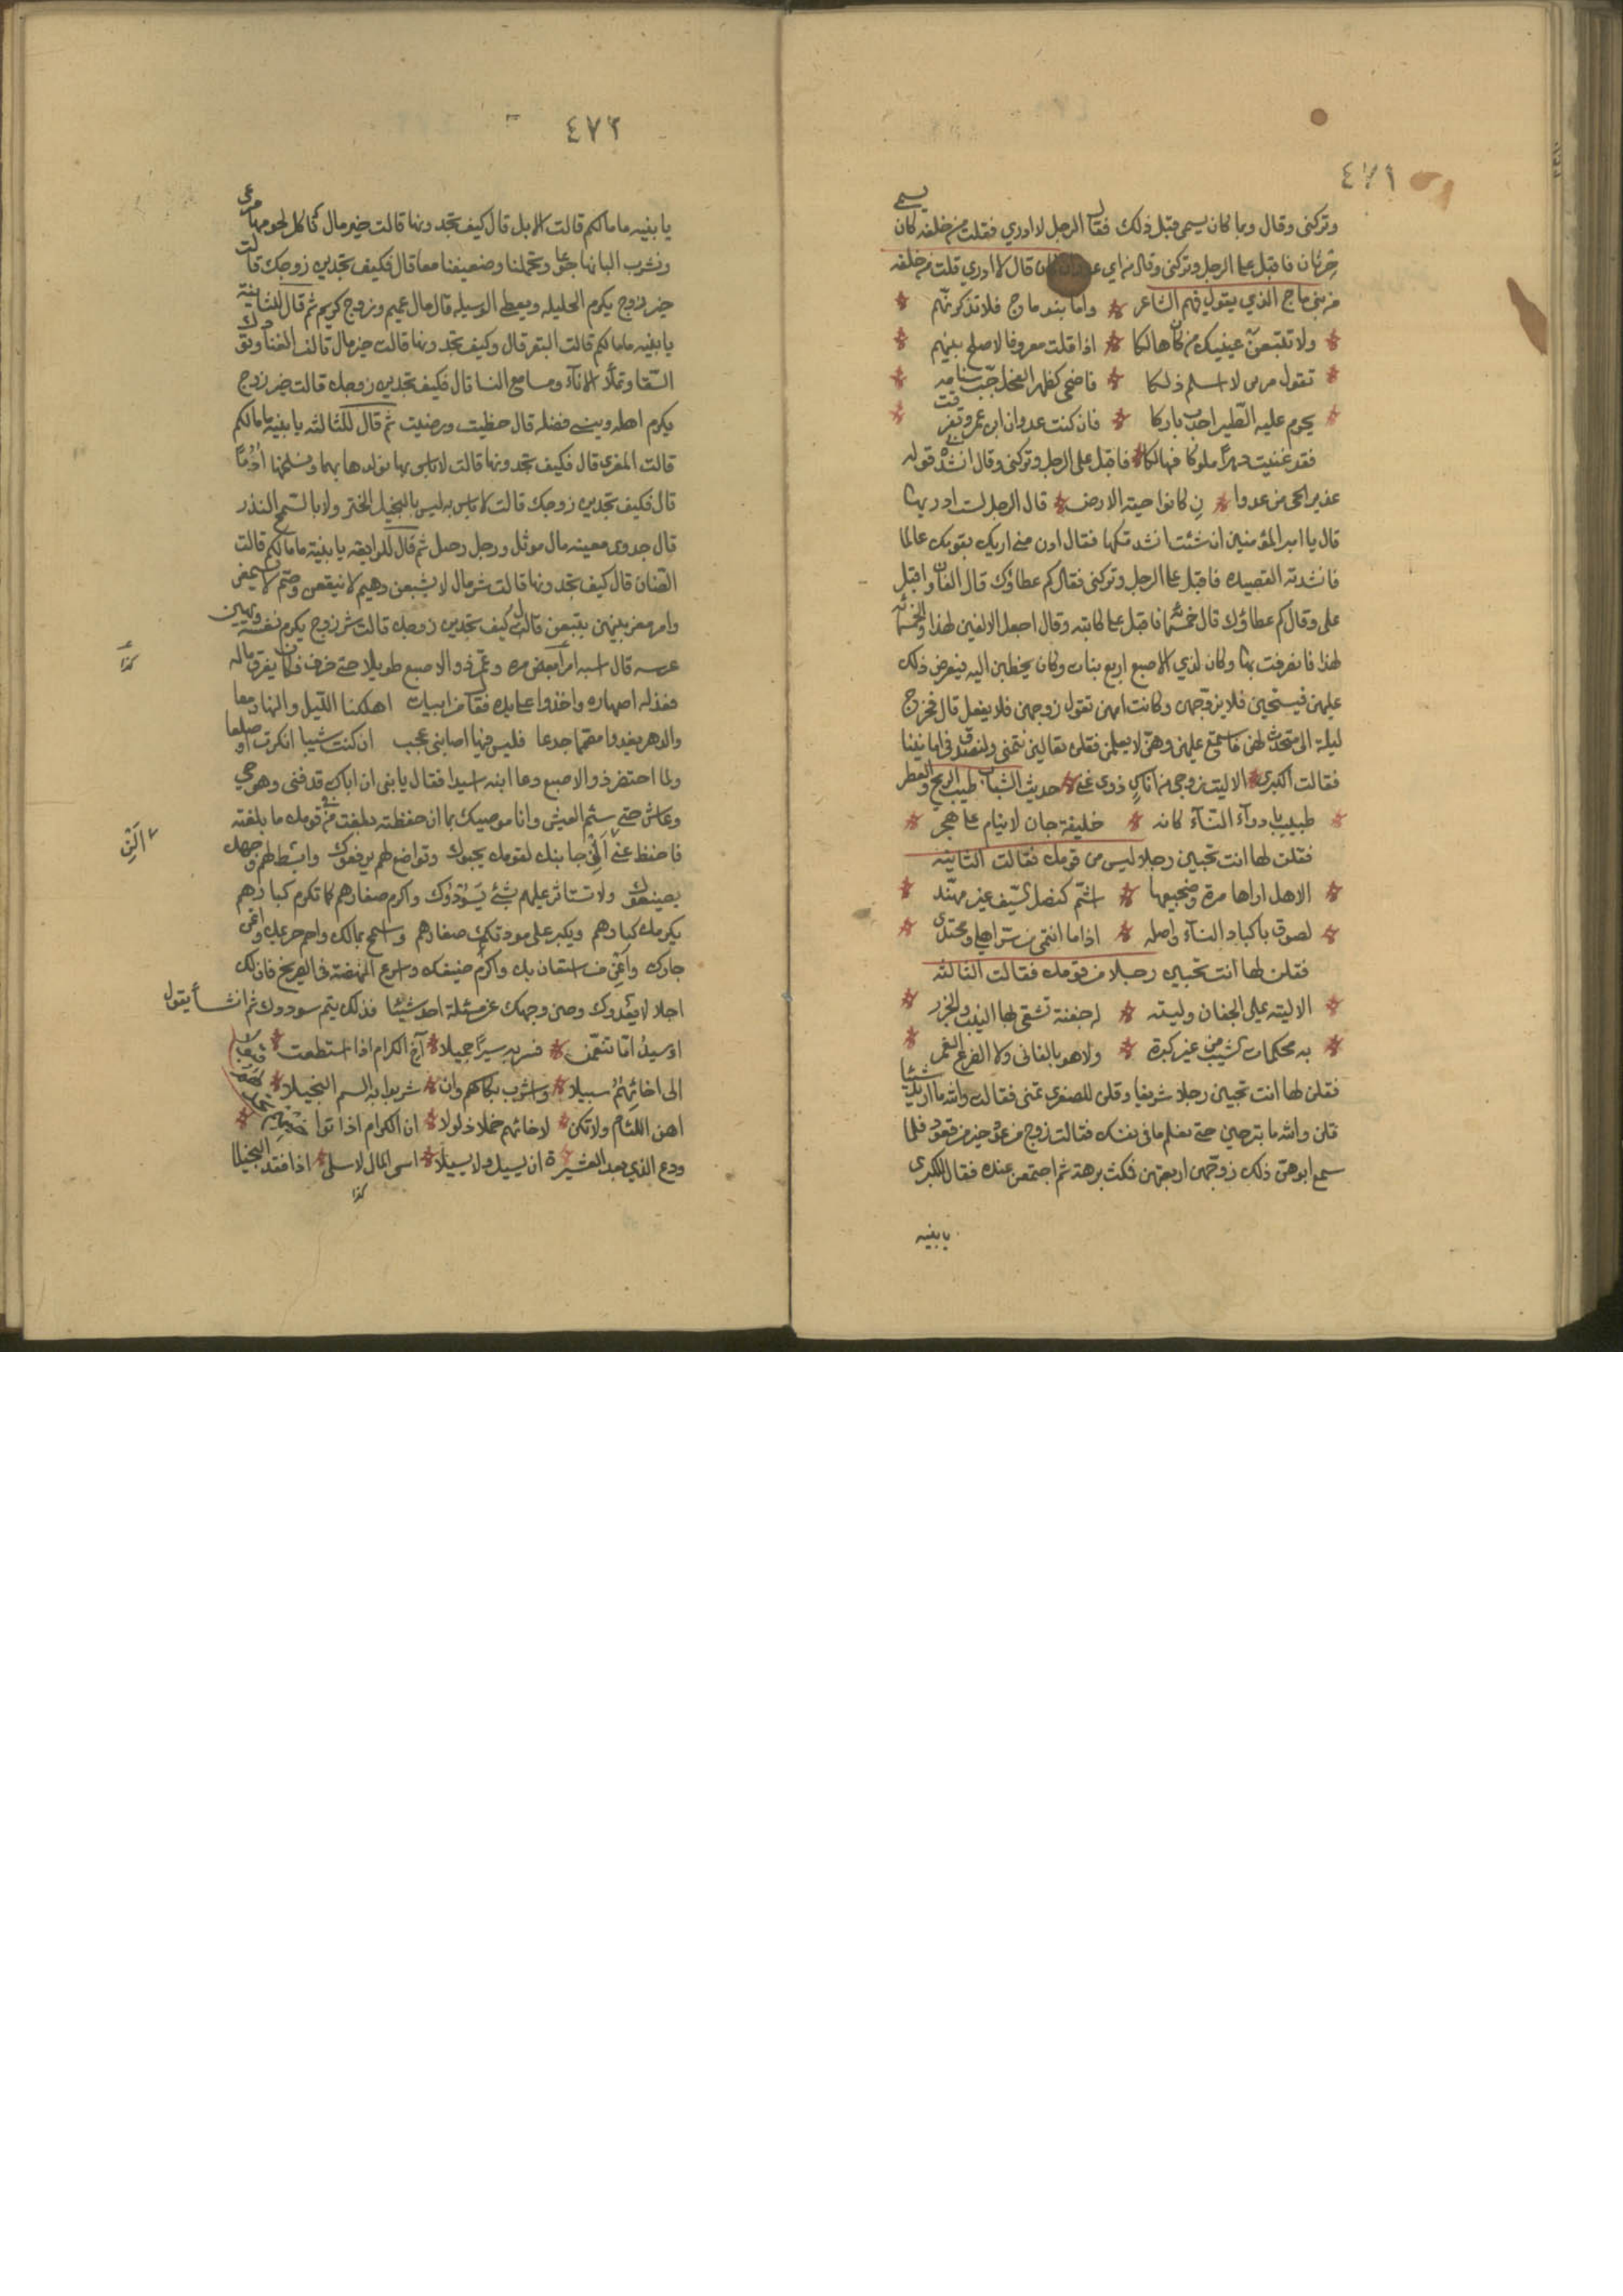 ٤٧١
وتركنى وقال وبما كان يسمى قبل ذلك فقال الرجل لا ادري فقلت من خلفه كان يسمى
حرثان فاقبل على الرجل وتركنى وقال من اي عدوان كان قال لا ادري قلت من خلفه
من بنى ناج الذي يقول فيهم الشاعر واما بنو ناج فلا تذكرنهم
ولا تتبعن عينيك من كان هالكا اذا قلت معروفا لاصلح بينهم
تقول مرس لا اسلم ذلكا فاضحى كظهر الفحل جب سنامه
يحوم عليه الطير احدب باركا فان كنت عدوان ابن عمرو تفرقت
فقد غنيت دهرا ملوكا هالكا فاقبل على الرجل وتركنى وقال انشدنا قوله
عذير الحى من عدوا ن كانوا حية الارض قال الرجل لست ادريها
قال يا امير المؤمنين ان شئت انشدتكها فقال ادن منى اريك بقومك عالما
فانشدته القصيده فاقبل على الرجل وتركنى فقال كم عطاؤك قال الفان واقبل
على وقال كم عطاؤك قال خمسمائة فاقبل على كاتبه وقال اجعل الالفين لهذا والخمسمائة
لهذا فانصرفت بها وكان لذي الاصبع اربع بنات وكان يخطبن اليه فيعرض ذلك
عليهن فيستحين فلا يزوجهن وكانت امهن تقول زوجهن فلا يفعل قال فخرج
ليلة الى متحدث لهن فاستمع عليهن وهن لا يعلمن فقلن تعالين نتمنى ولنصدق فى امانينا
فقالت الكبرى الا ليت زوجى من اناس ذوى غنى حديث الشباب طيب الريح والعطر
طبيب بادوآء النسآء كانه خليفة جان لا ينام على هجر
فقلن لها انت تحبين رجلا ليس من قومك فقالت الثانية
الا هل اراها مرة وضجيعها اشم كنصل السيف غير مهند
لصوق باكباد النسآء واصله اذا ما انتمى من سر اهلى ومحتدى
فقلن لها انت تحبين رجلا من قومك فقالت الثالثة
الا ليته على الجفان وليته له جفنة تشقى لها النيب والجزر
به محكمات الشيب من غير كبرة ولا هو بالفانى ولا الضرع الغمر
فقلن لها انت تحبين رجلا شريفا وقلن للصغرى تمنى فقالت والله ما اريد شيئا
قلن والله ما تبرحين حتى نعلم ما فى نفسك فقالت زوج من عود خير من قعود فلما
سمع ابوهن ذلك زوجهن اربعتهن فمكث برهة ثم اجتمعن عنده فقال للكبرى
يا بنيه
٤٧٢
يا بنيه ما مالكم قالت الابل قال كيف تجدونها قالت خير مال ناكل لحومها مزعى
ونشرب البانها جرعا وتحملنا وضعيفنا معا قال فكيف تجدين زوجك قالت
خير زوج يكرم الحليله ويعطى الوسيله قال مال عميم وزوج كريم ثم قال للثانية
يا بنيه ما مالكم قالت البقر قال وكيف تجدونها قالت خير مال تالف الفنا وتودك
السقا وتملأ الانآء ونسا مع النسا قال فكيف تجدين زوجك قالت خير زوج
يكرم اهله وينسى فضله قال حظيت ورضيت ثم قال للثالثه يا بنية ما مالكم
قالت المعزى قال فكيف تجدونها قالت لا باس بها نولدها بهما ونسلخها ادما
قال فكيف تجدين زوجك قالت لا باس به ليس بالبخيل الختر ولا بالسمح النذر
قال جدوى مغنيه مال موثل ورجل رحل ثم قال للرابعه يا بنية ما مالكم قالت
الضان قال كيف تجدونها قالت شر مال لا يشبعن وهيم لا ينقعن وصم لا يسمعن
وامر مغويتهن يتبعن قال كيف تجدين زوجك قالت شر زوج يكرم نفسه ويهين
عرسه قال اشبه امرأ بعض بره وعمر ذو الاصبع طويلا حتى خرف فكان يفرق ماله
فعذله اصهاره واخذوا على يده فقال من ابيات اهلكنا الليل والنهار معا
والدهر يغدوا مصمما جدعا فليس فيما اصابنى عجب ان كنت شيبا انكرت او صلعا
ولما احتضر ذو الاصبع دعا ابنه اسيدا فقال يا بنى ان اباك قد فنى وهو حى
وعاش حتى سئم العيش وانا موصيك بما ان حفظته بلغت فى قومك ما بلغته
فاحفظ عنى الن جانبك لقومك يحبوك وتواضع لهم يرفعوك وابسط لهم وجهك
يطيعوك ولا تستاثر عليهم بشئ يسودوك واكرم صغارهم كما تكرم كبارهم
يكرمك كبارهم ويكبر على مودتك صغارهم واسمح بمالك واحم حريمك واعن
جارك واعن من استعان بك واكرم ضيفك واسرع النهضة فى الصريخ فان لك
اجلا لا يعدوك وصن وجهك عن مسئلة احد شيئا فذلك يتم سوددك ثم انشأ يقول
اوسيد اما تنعمن فسر به سيرا جميلا آخ الكرام اذا استطعت
الى اخائهم سبيلا واشرب بكاسهم وان شربوا به السم الثميلا
اهن اللئام ولا تكن لاخائهم جملا ذلولا ان الكرام اذا تواخيهم
ودع الذي يعد العشيرة ان يسيل ولا يسيلا اسى المال لا سلى اذا فقد البخيلا
كذا
كذا
الن